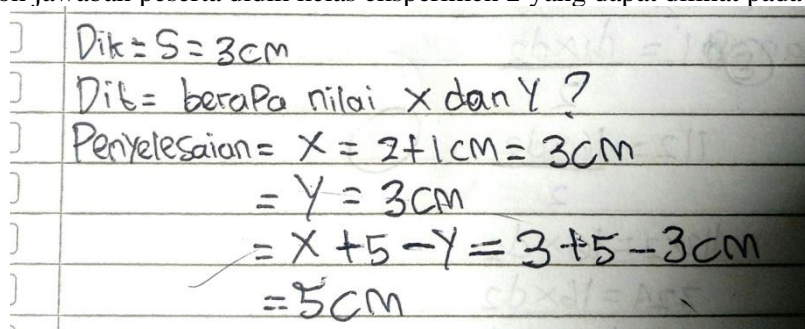 Dik = S = 3cm
Dit = berapa nilai x dan y ?
Penyelesaian = x = 2+1cm = 3cm
= y = 3cm
= x + 5 - y = 3 + 5 - 3cm
= 5cm